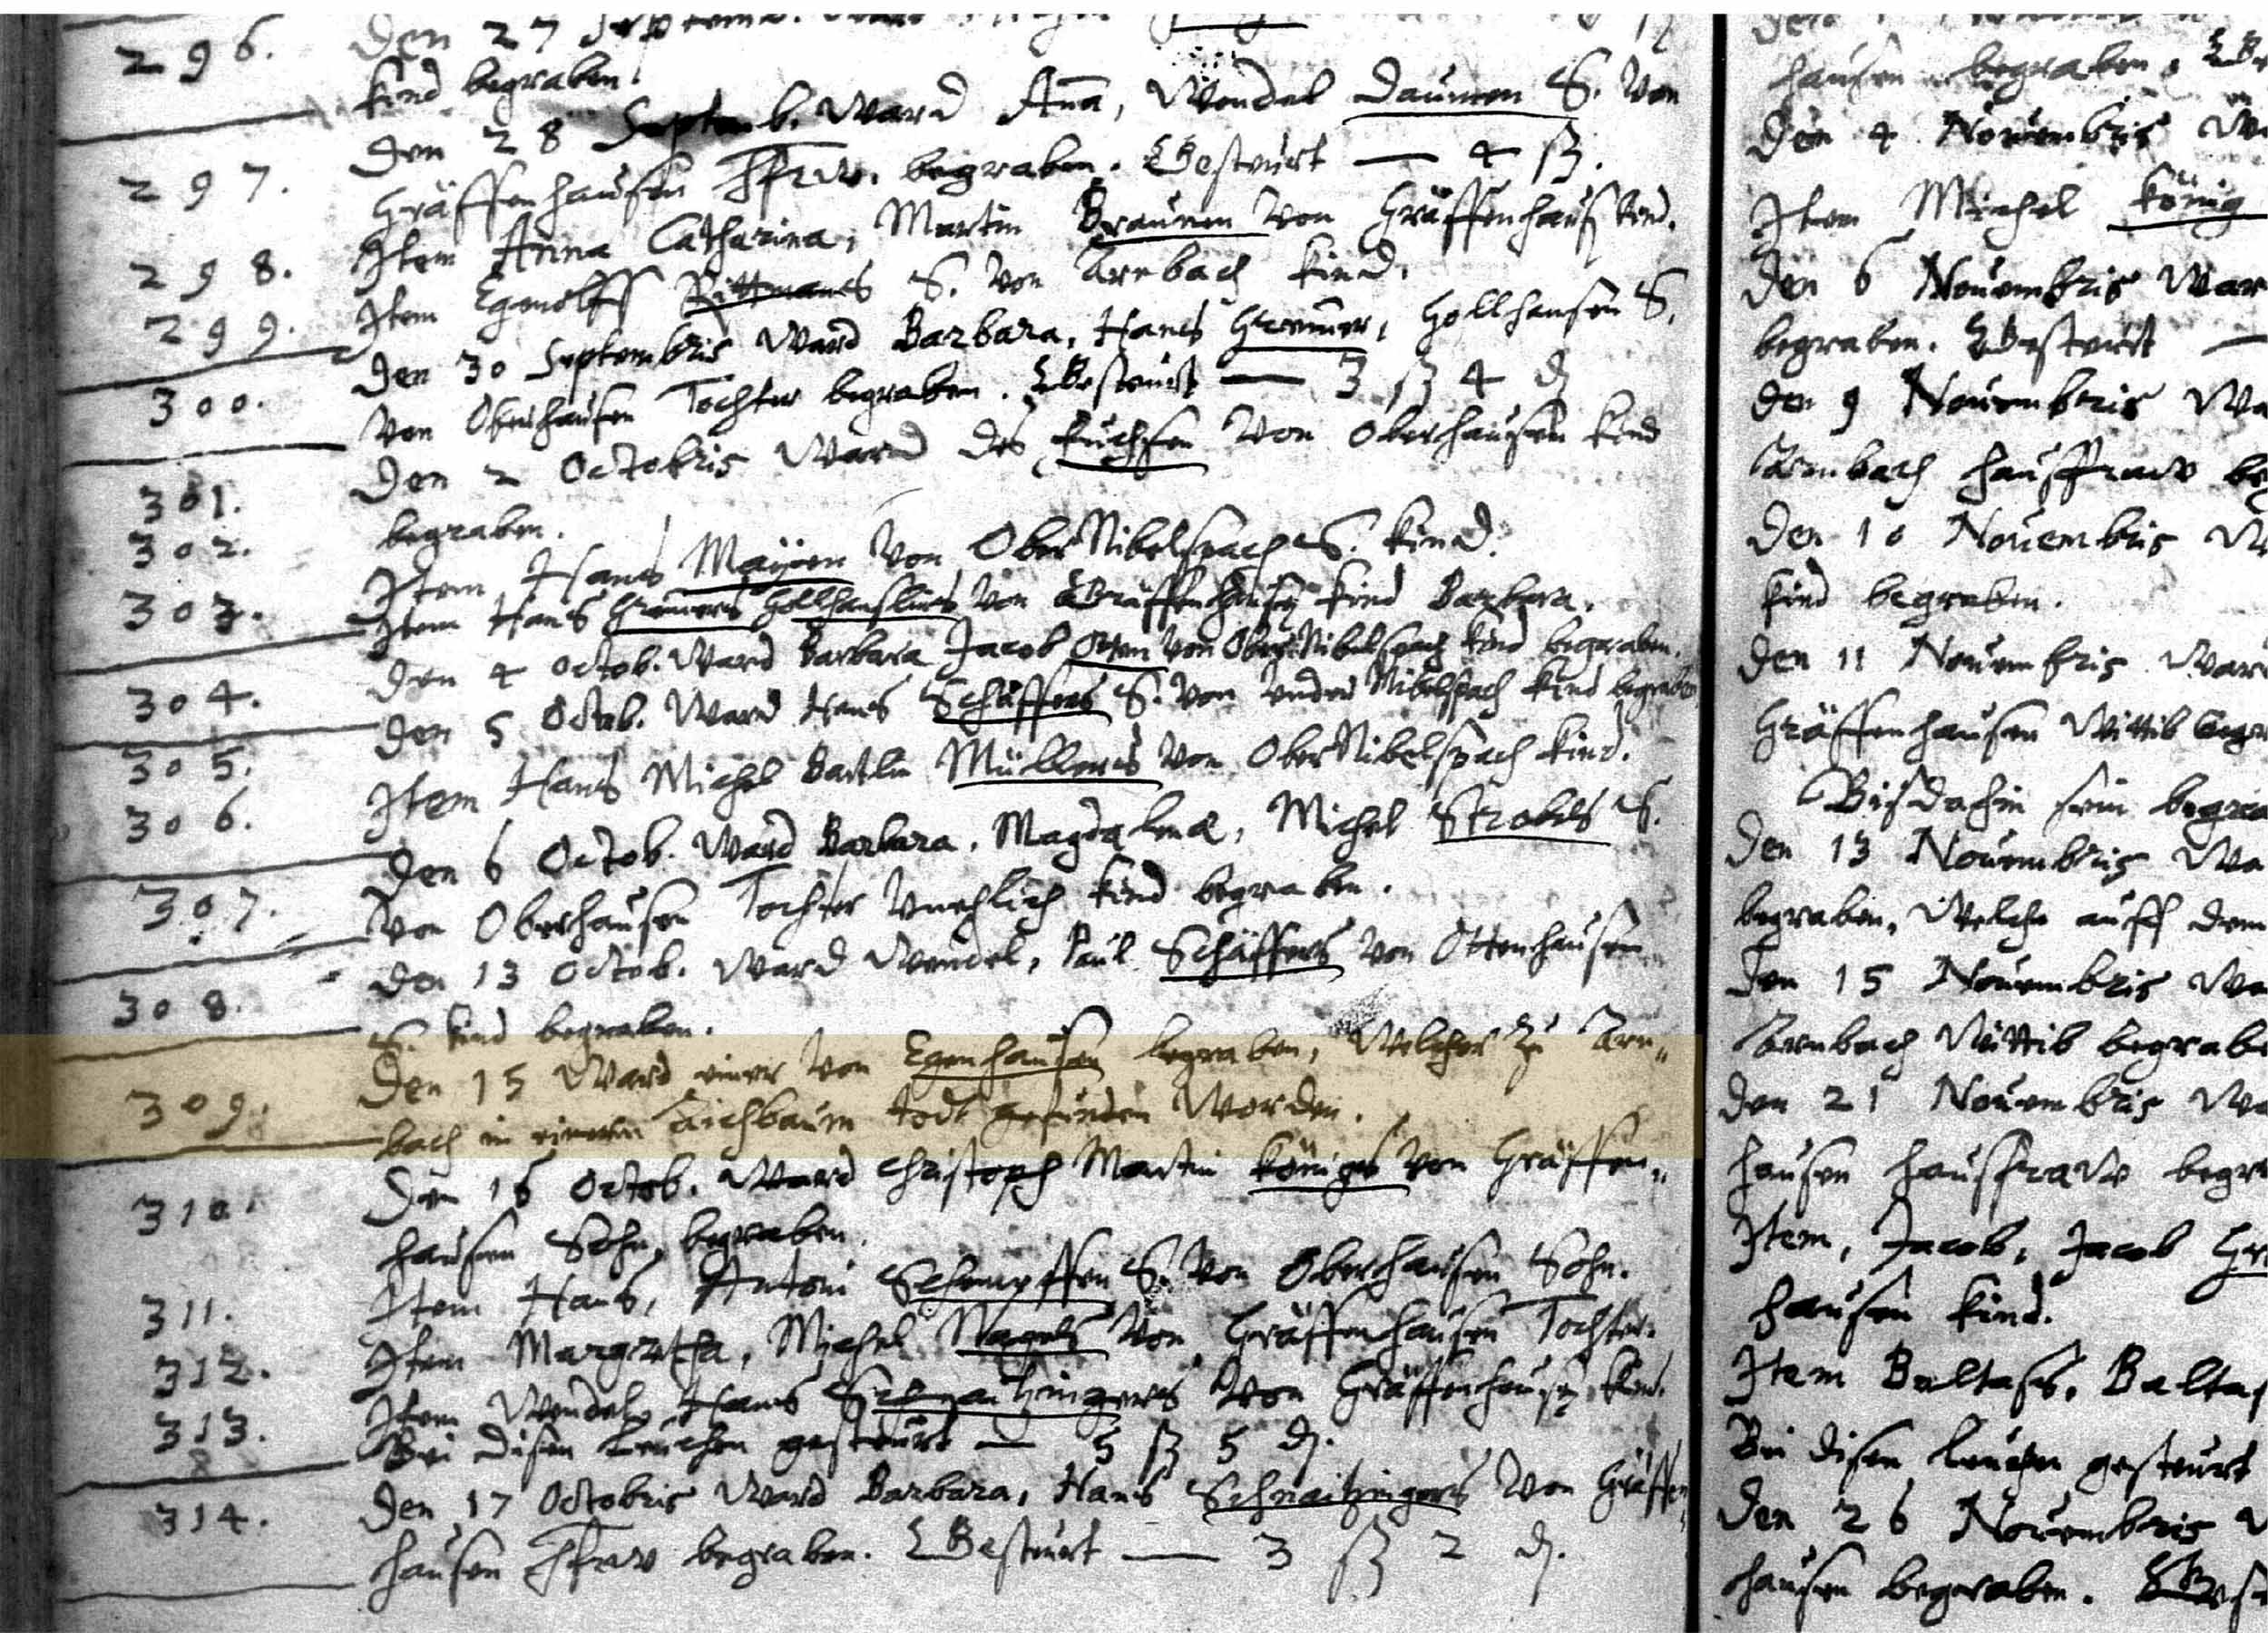 296. Den 27 Septemb. ward
kind begraben.
297. Den 28 Septemb. Ward Anna, Wendel Daumen S. von
Gräffenhausen Hfraw. begraben. Gesteurt — 4 ß.
298. Item Anna Catharina, Martin Braunen von Gräffenhauß kind.
299. Item Egenolff Rittmans S. von Arnbach kind.
300. Den 30 Septembris Ward Barbara, Hans Gremer, Gollhansen S.
von Oberhausen Tochter begraben. Gesteurt — 3 ß 4 d
301. Den 2 Octobris Ward des Fuchsen von Oberhausen kind
begraben.
302. Item Hans Mayen von OberNibelspach S. kind.
303. Item Hans Gremers Gollhanslins von Gräffenhauß kind Barbara.
304. Den 4 Octob. Ward Barbara Jacob Otten von OberNibelspach kind begraben.
305. Den 5 Octob. Ward Hans Schäffers S. von under Nibelspach kind begraben
306. Item Hans Michel Bartlin Müllers von OberNibelspach kind.
307. Den 6 Octob. Ward Barbara, Magdalena, Michel Strobels S.
von Oberhausen Tochter unehlich kind begraben.
308. Den 13 Octob. Ward Wendel, Paul Schäffers von Ottenhausen
S. kind begraben.
309. Den 15 Ward einer von Egenhausen begraben, Welcher zu Arn„
bach in einem Aichbaum todt gefunden Worden.
310. Den 16 Octob. Ward Christoph Martin Königs von Gräffen„
hausen Sohn begraben.
311. Item Hans, Antoni Schempffen S. von Oberhausen Sohn.
312. Item Margretha, Michel Nagels von Gräffenhausen Tochter.
313. Item Wendel, Hans von Gräffenhauß kind.
Bei disen Leuchen gesteurt — 5 ß 5 d.
314. Den 17 Octobris Ward Barbara, Hans Schnaitzingers von Gräffen
hausen Hfraw begraben. Gesteurt — 3 ß 2 d.
hausen begraben.
Den 4 Novembris
Item Michel König
Den 6 Novembris War
begraben. Gesteurt —
Den 9 Novembris Wa
Arnbach haußfraw be
Den 10 Novembris
kind begraben.
Den 11 Novembris War
Gräffenhausen Wittib begr
Bisdahin sein begra
Den 13 Novembris Wa
begraben, Welche auff dem
Den 15 Novembris Wa
Arnbach Wittib begrabe
Den 21 Novembris Wa
hausen haußfraw begr
Item, Jacob, Jacob Gr
hausen kind.
Item Baltaß, Baltaß
Bei disen Leuchen gesteurt
Den 26 Novembris
hausen begraben.